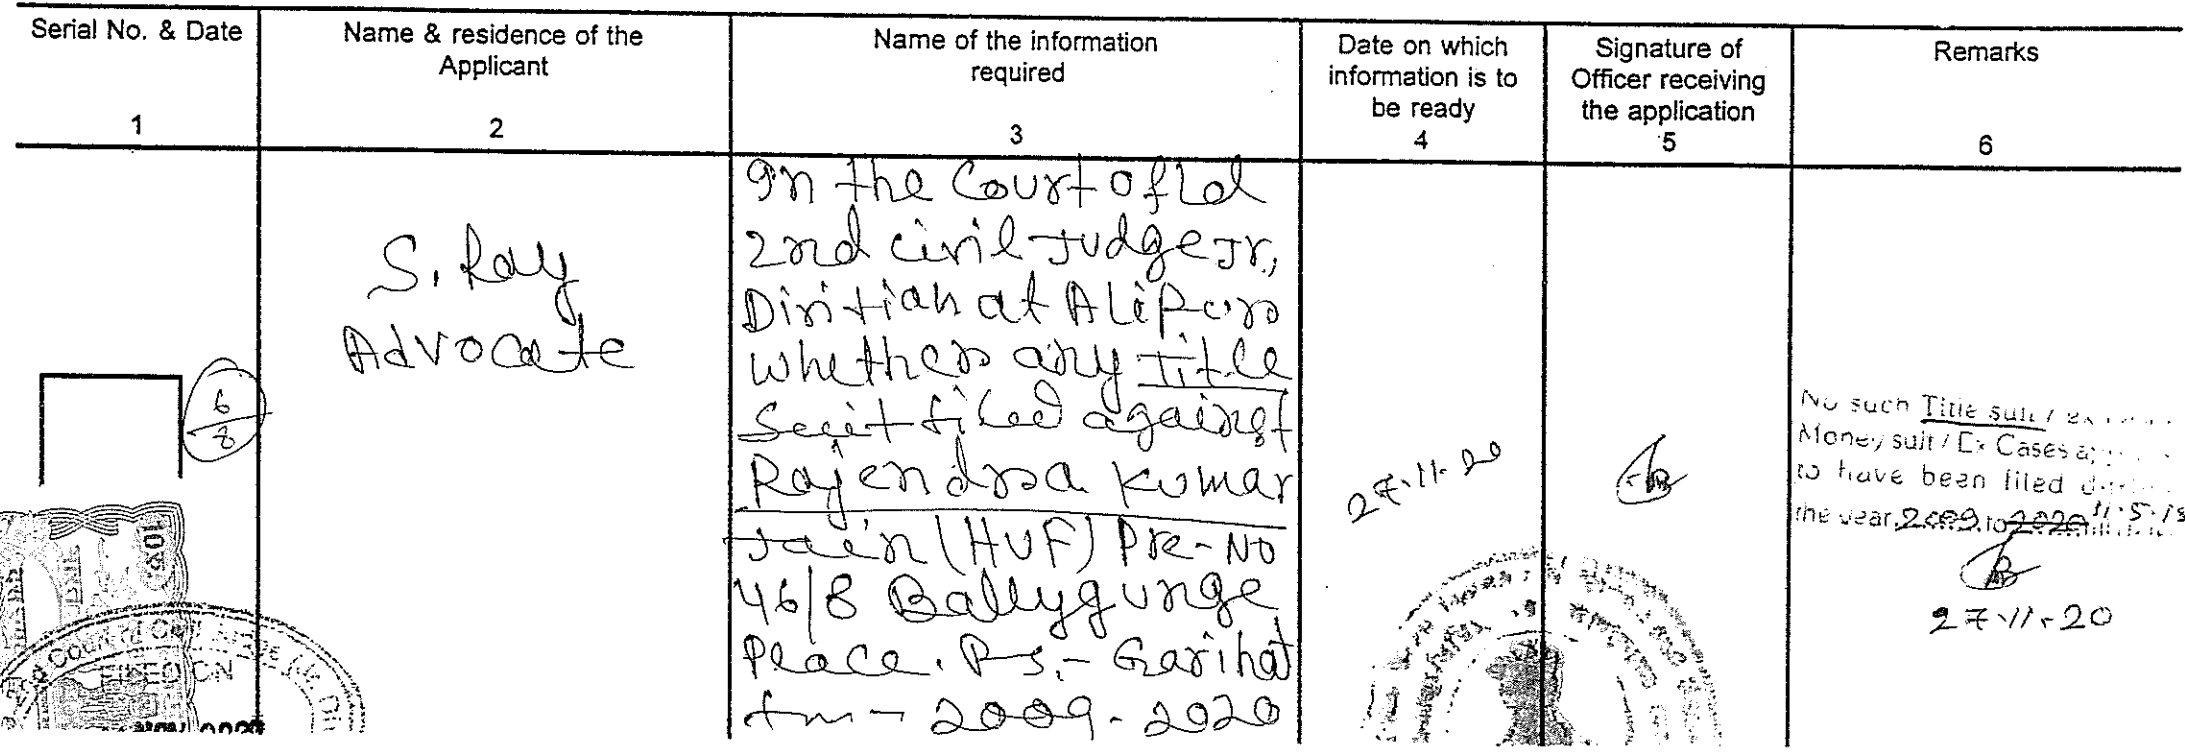 Serial No. & Date
1
Name & residence of the
Applicant
2
Name of the information
required
3
Date on which
information is to
be ready
4
Signature of
Officer receiving
the application
5
Remarks
6
6
8
S. Ray
Advocate
In the Court of Ld
2nd Civil Judge Jr,
Divition at Alipore
whether any Title
Suit filed against
Rajendra Kumar
Jain (HUF) Pre-No
46/8 Ballygunge
Place. P.S.- Garihat
2009-2020
27.11.20
No such Title suit /
Money suit / Ex Cases
to have been filed
the year 2009 to 2020
27.11.20
COURT OF CIVIL
FILED ON